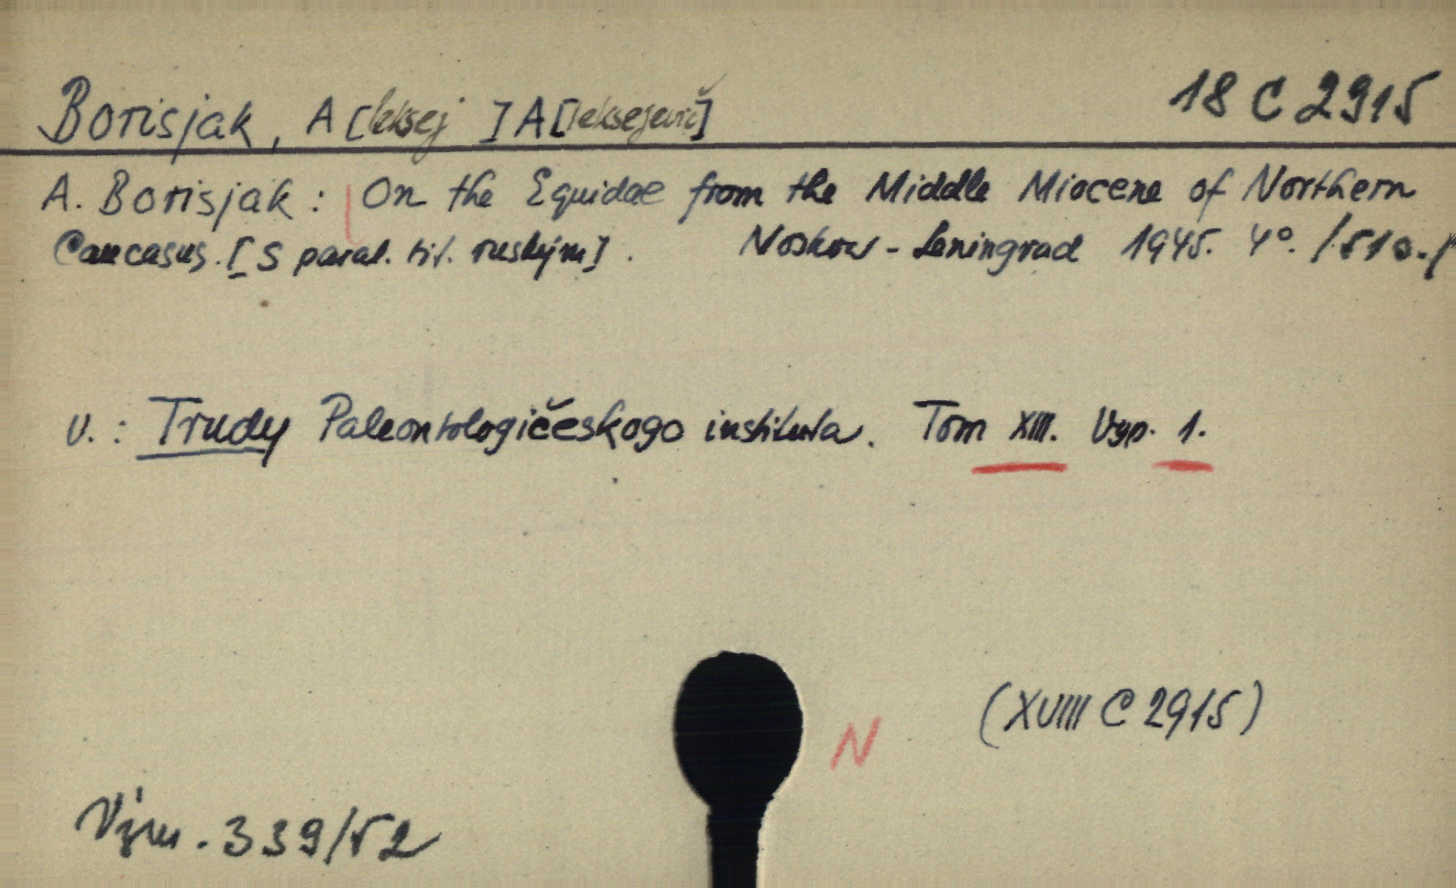 18 C 2915
Borisjak, A[leksej ] A[leksejevič]
A. Borisjak: | On the Equidae from the Middle Miocene of Northern
Caucasus. [S paral. tit. ruským]. Moskow - Leningrad 1945. 4°. /51 s./
v.: Trudy Paleontologičeskogo instituta. Tom XIII. Vyp. 1.
(XVIII C 2915)
N
Vým. 339/52